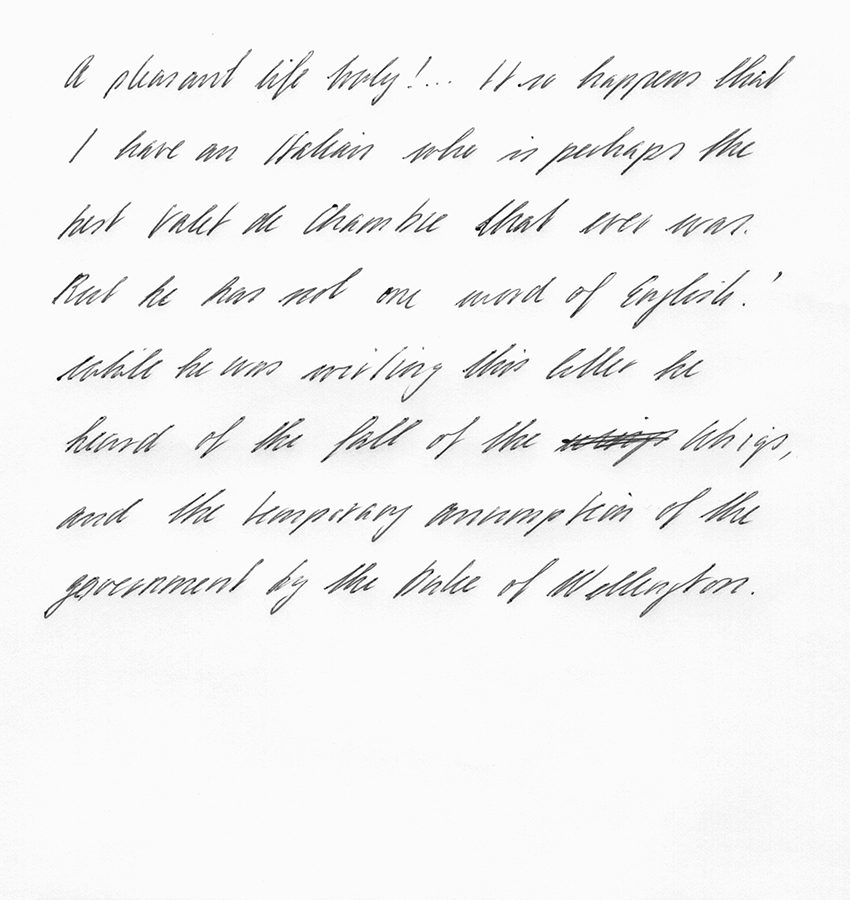 A pleasant life truly!... It so happens that
I have an Italian who is perhaps the
best Valet de Chambre that ever was.
But he has not one word of English.'
While he was writing this letter he
heard of the fall of the Whigs,
and the temporary assumption of the
government by the Duke of Wellington.